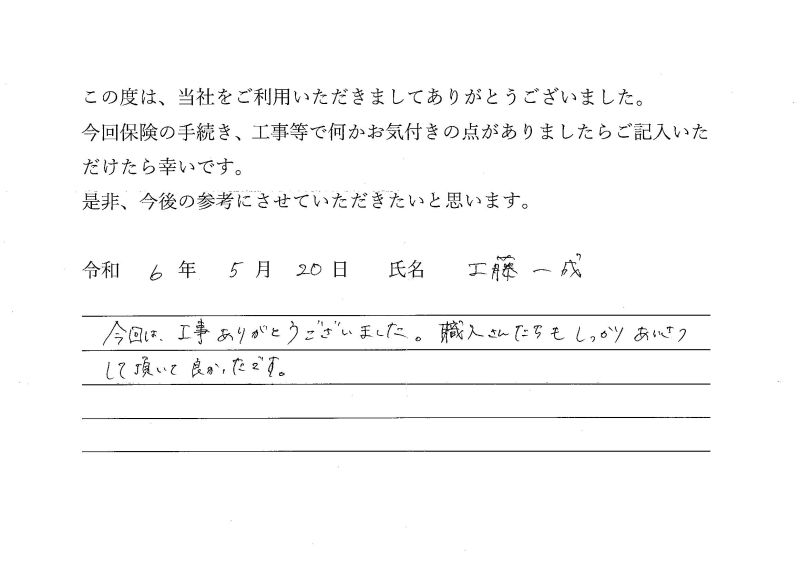 この度は、当社をご利用いただきましてありがとうございました。
今回保険の手続き、工事等で何かお気付きの点がありましたらご記入いた
だけたら幸いです。
是非、今後の参考にさせていただきたいと思います。
令和 6 年 5 月 20 日 氏名 工藤 一成
今回は、工事ありがとうございました。職人さんたちもしっかりあいさつ
して頂いて良かったです。